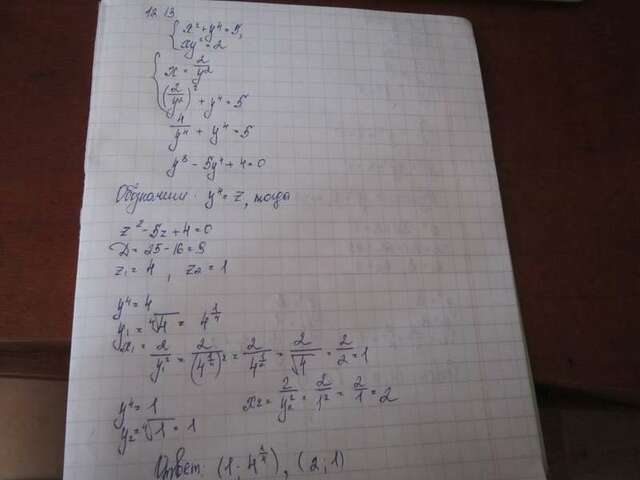 12.13
{x² + y⁴ = 5,
xy² = 2
{x = 2/y²
(2/y²)² + y⁴ = 5
4/y⁴ + y⁴ = 5
y⁸ - 5y⁴ + 4 = 0
Обозначим: y⁴ = z, тогда
z² - 5z + 4 = 0
D = 25 - 16 = 9
z₁ = 4, z₂ = 1
y⁴ = 4
y₁ = ⁴√4 = 4^(1/4)
x₁ = 2/y₁² = 2/(4^(1/4))² = 2/4^(1/2) = 2/√4 = 2/2 = 1
y⁴ = 1
y₂ = ⁴√1 = 1
x₂ = 2/y₂² = 2/1² = 2/1 = 2
Ответ: (1; 4^(1/4)), (2; 1)